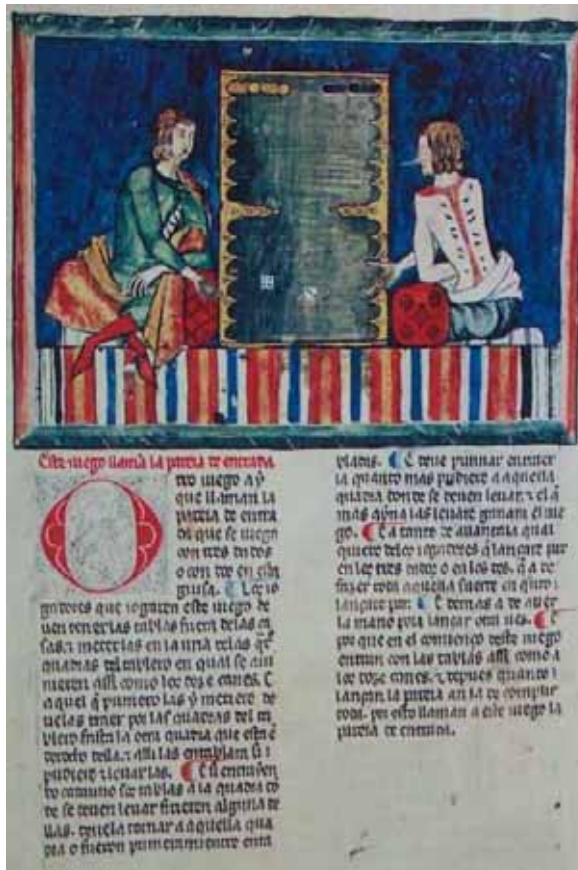 Este iuego llamã la pareia de entrada
Otro iuego a ȳ
que llaman la
pareia de entra
da que se iuega
con tres dados
o con dos en esta
guisa. Los iu
gadores que iogaren este iuego de
uen poner las tablas fuera delas ca
sas. ⁊ meter las en la una delas q̃
quadras del tablero en qual se aui
nieren assi como los doze canes. E
aquel q̃ primero las y metiere de
uelas traer por las quadras del ta
blero fasta la otra quadra que esta ẽ
derecho della. ⁊ alli las entablara si
pudiere ⁊ leuar las. E si enuinien
do camino sus tablas a la quadra do
se deuen leuar firieren alguna de
llas. deuela tornar a aquella qua
dra o fueron primeramientre enta
bladas. E deue punnar en uuer
la quanto mas pudiere a aquella
quadra don de se deuen leuar. ⁊ el q̃
mas ayna las leuare ganara el iue
go. E a tanto de auantaia qual
quiere delos iogadores q̃ lançare par
en los tres dados o en los dos. q̃ a de
fazer toda aquella suerte en q̃nto
lançare par. E demas a de auer
la mano pora lançar otra uez. E
por que en el comienço deste iuego
entran con las tablas assi como a
los doze canes. ⁊ depues quanto
lançan la pareia an la de complir
toda. por esto llaman a este iuego la
pareia de entrada.